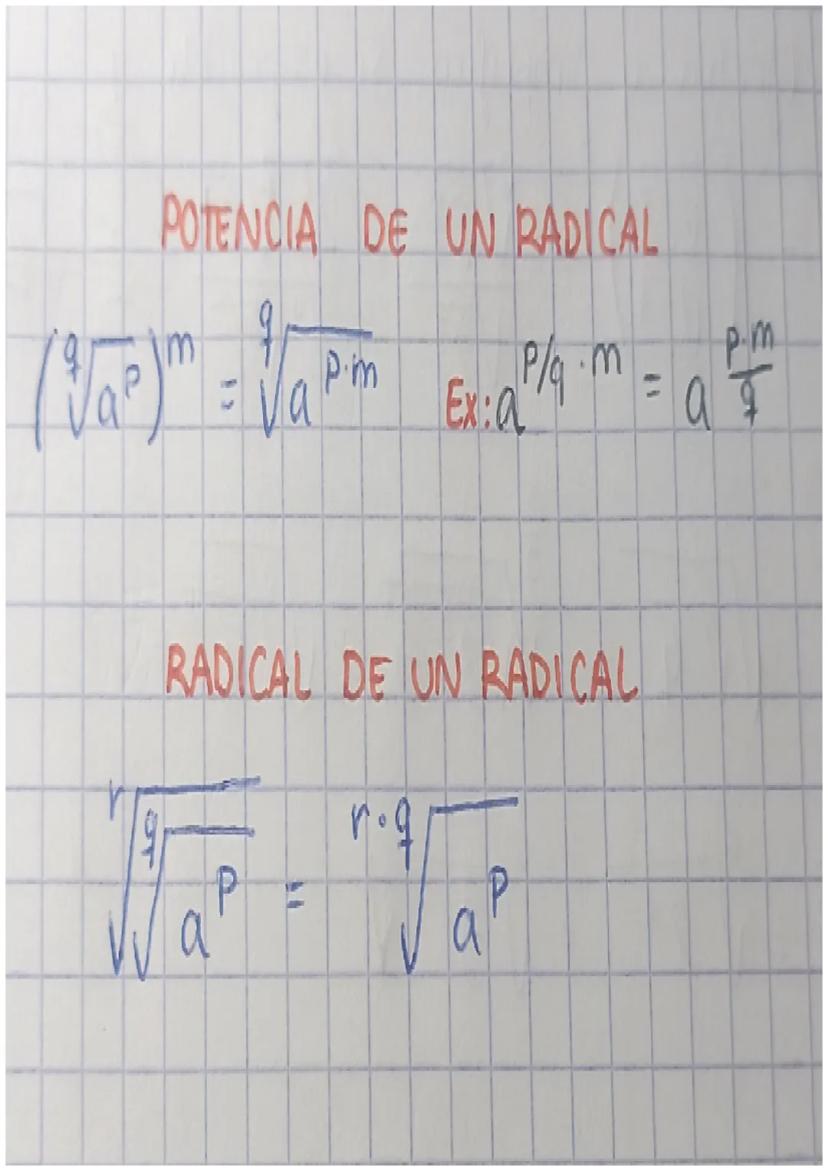 POTENCIA DE UN RADICAL
(\sqrt[q]{a^p})^m = \sqrt[q]{a^{p·m}} Ex: a^{p/q · m} = a^{\frac{p·m}{q}}
RADICAL DE UN RADICAL
\sqrt[r]{\sqrt[q]{a^p}} = \sqrt[r·q]{a^p}